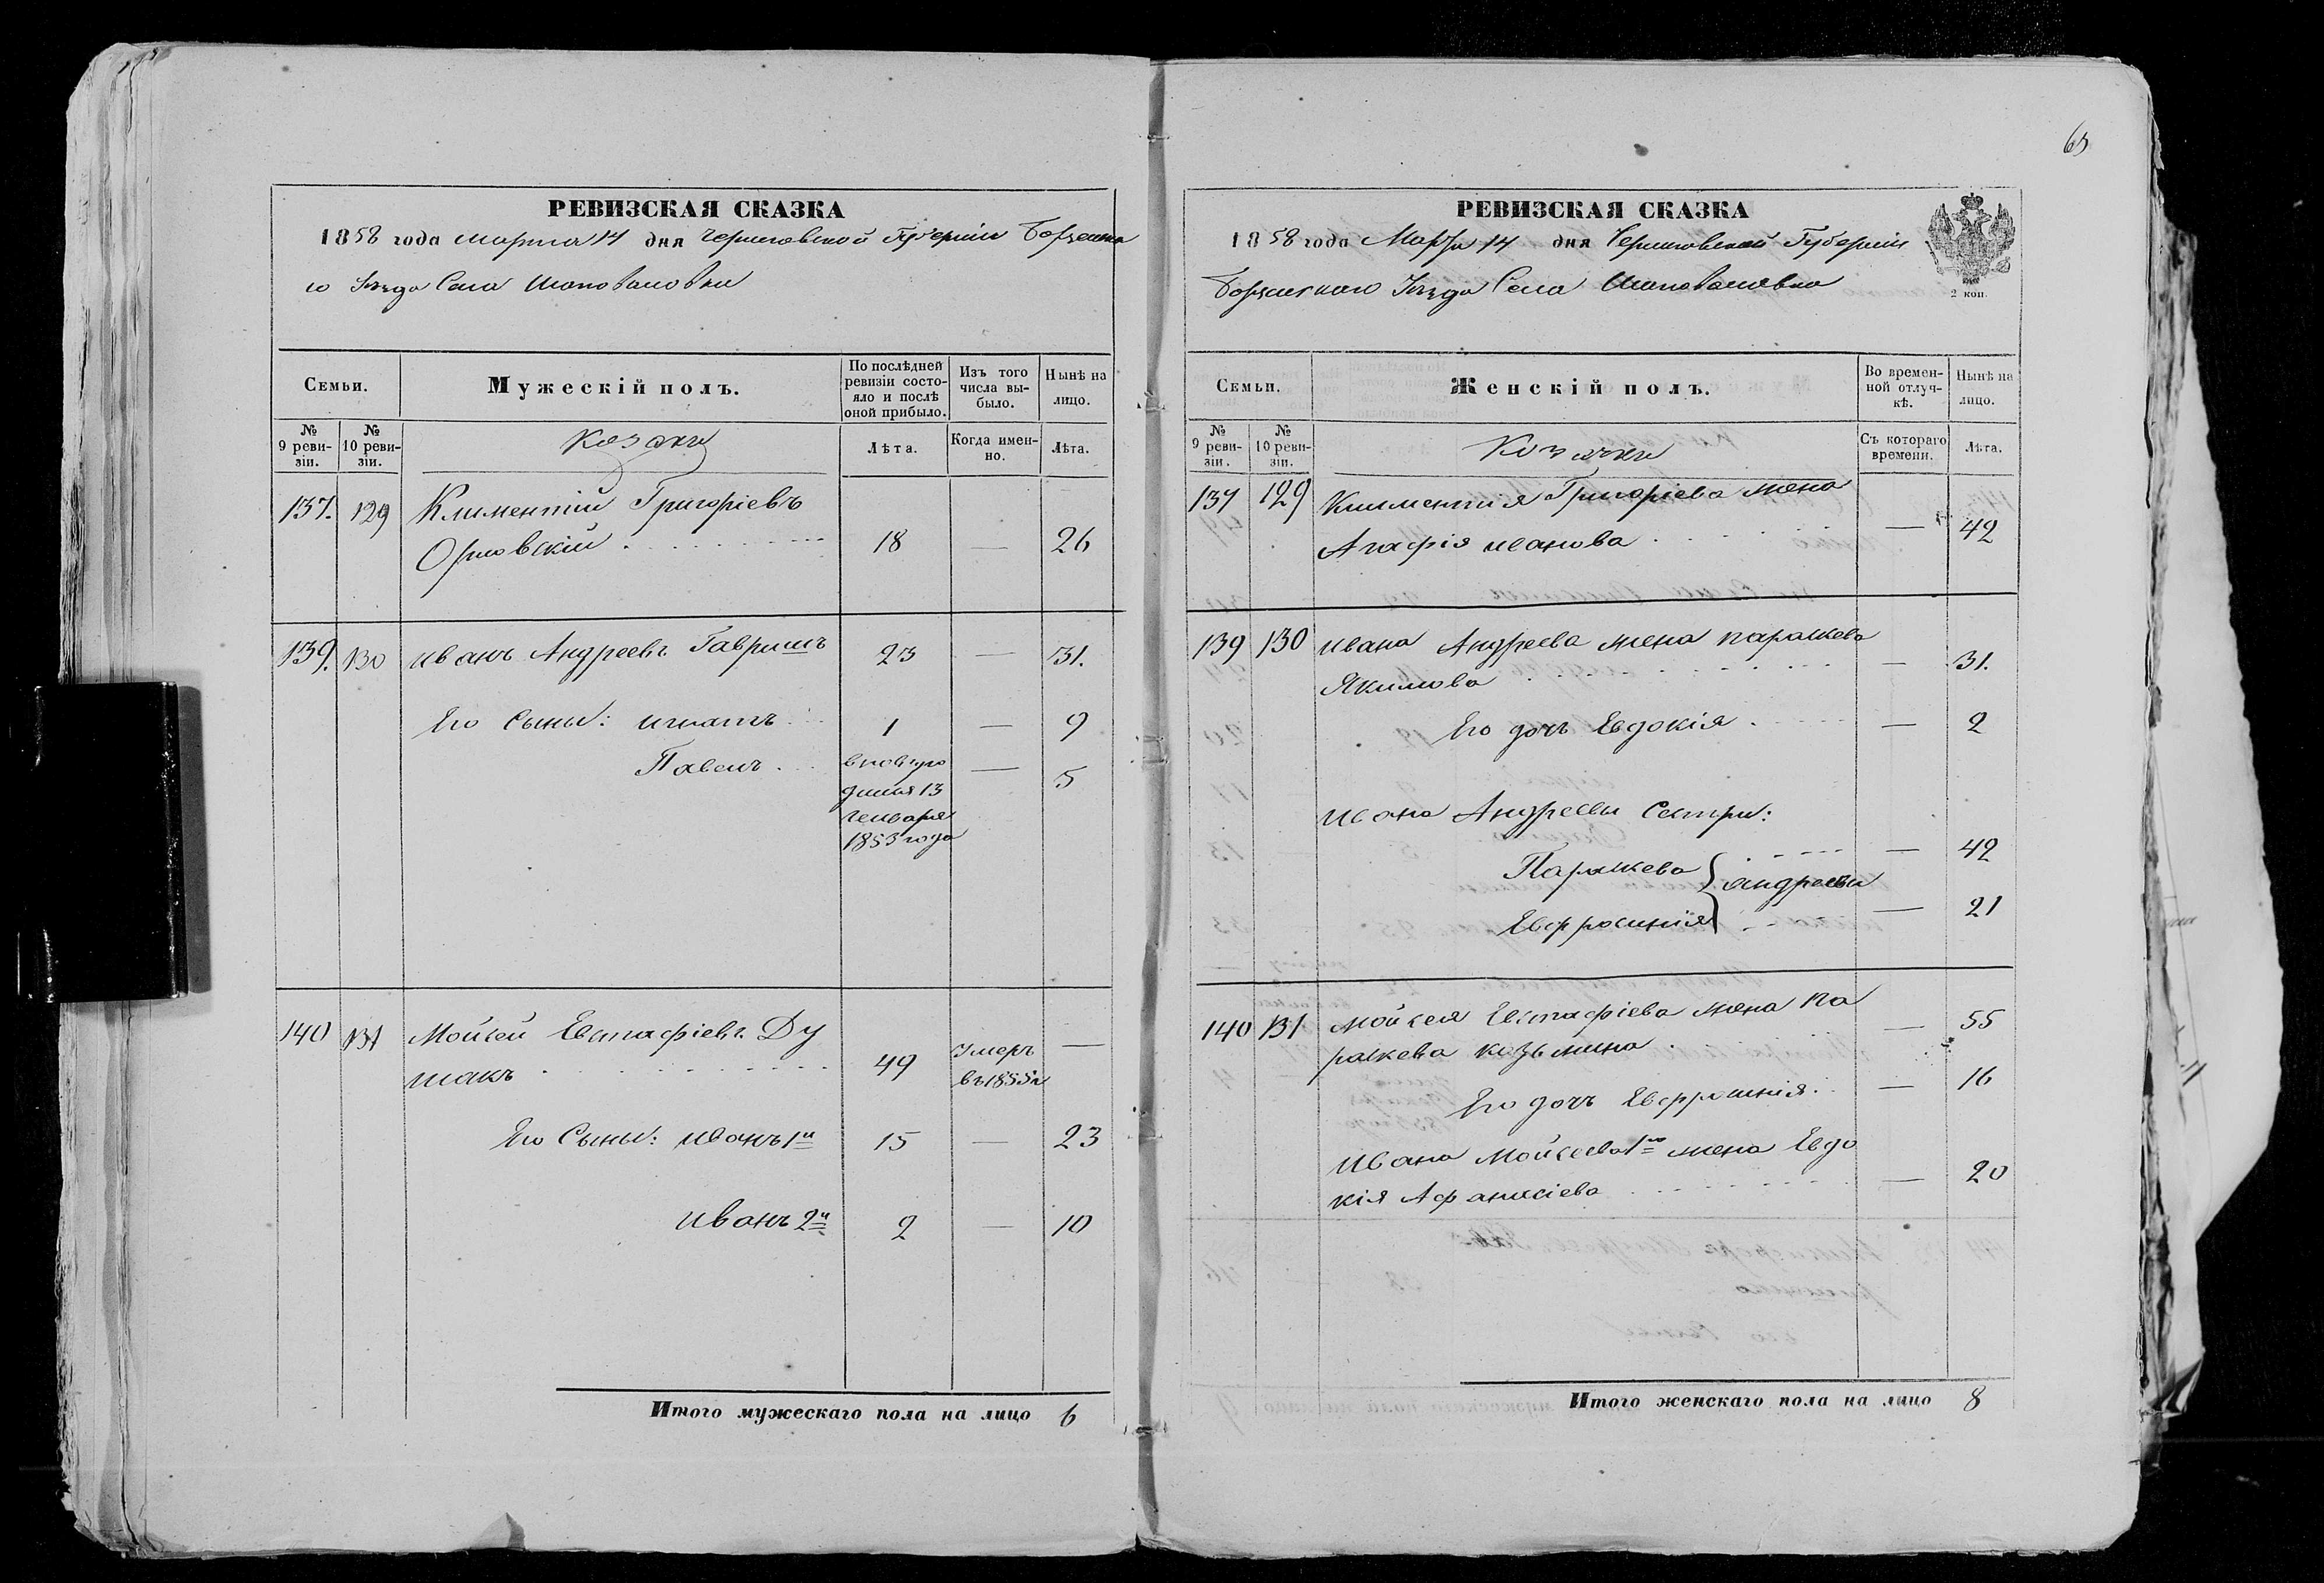 РЕВИЗСКАЯ СКАЗКА
1858 года марта 14 дня Черниговской Губерніи Борзенска
го Уезда Села Шаповаловки
Семьи.
Мужескій полъ.
По послѣдней ревизіи состо-
яло и послѣ оной прибыло.
Изъ того числа вы-
было.
Нынѣ на лицо.
№ 9 реви-
зіи.
№ 10 реви-
зіи.
Козаки
Лѣта.
Когда имен-
но.
Лѣта.
137. 129 Климентій Григоріевъ
Орловскій 18 — 26
139. 130 Иванъ Андреевъ Гавришъ 23 — 31.
Его Сыны: Игнатъ 1 — 9
Павелъ — 5
13
Генваря
1853 года
140 131 Мойсей Евстафіевъ Ду
шакъ 49 Умеръ —
въ 1855 г
Его Сыны: Иванъ 1й 15 — 23
Иванъ 2й 2 — 10
Итого мужескаго пола на лицо 6
65
РЕВИЗСКАЯ СКАЗКА
1858 года Марта 14 дня Черниговской Губерніи
Борзенского Уезда Села Шаповаловки
2 коп.
Семьи.
Женскій полъ.
Во времен-
ной отлуч-
кѣ.
Нынѣ на лицо.
№ 9 реви-
зіи.
№ 10 реви-
зіи.
Козачки
Съ котораго времени.
Лѣта.
137 129 Климентія Григоріева жена
Агафія Иванова — 42
139 130 Ивана Андреева жена Параскева
Якимова — 31.
Его дочь Евдокія — 2
Ивана Андреевы Сестри:
Параскева — 42
Андреевы
Евфросинія — 21
140 131 Мойсея Евстафіева жена Па
раскева Козьмина — 55
Его дочь Евфросинія — 16
Ивана Мойсеева 1го жена Евдо
кія Афанасіева — 20
Итого женскаго пола на лицо 8